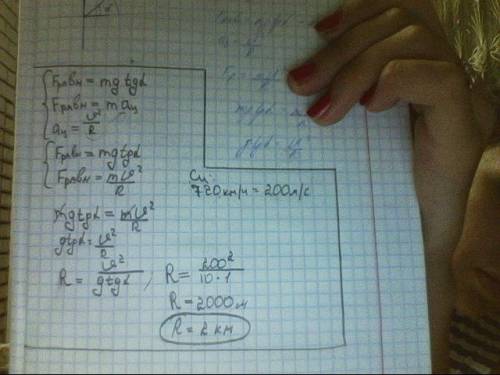 α
Fравн = mgtgα
Fравн = maц
aц = υ²/R
Fравн = mgtgα
Fравн = mυ²/R
СИ:
720км/ч = 200м/с
mgtgα = mυ²/R
gtgα = υ²/R
R = υ²/gtgα, R = 200²/10·1
R = 2000м
R = 2 км